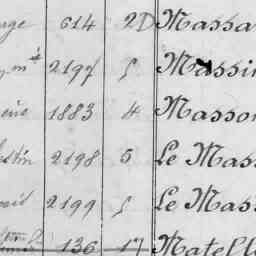 age 614 2D Massa
2197 5 Massin
1883 4 Masson
stin 2198 5 Le Mass
2199 5 Le Mass
136 17 Matell